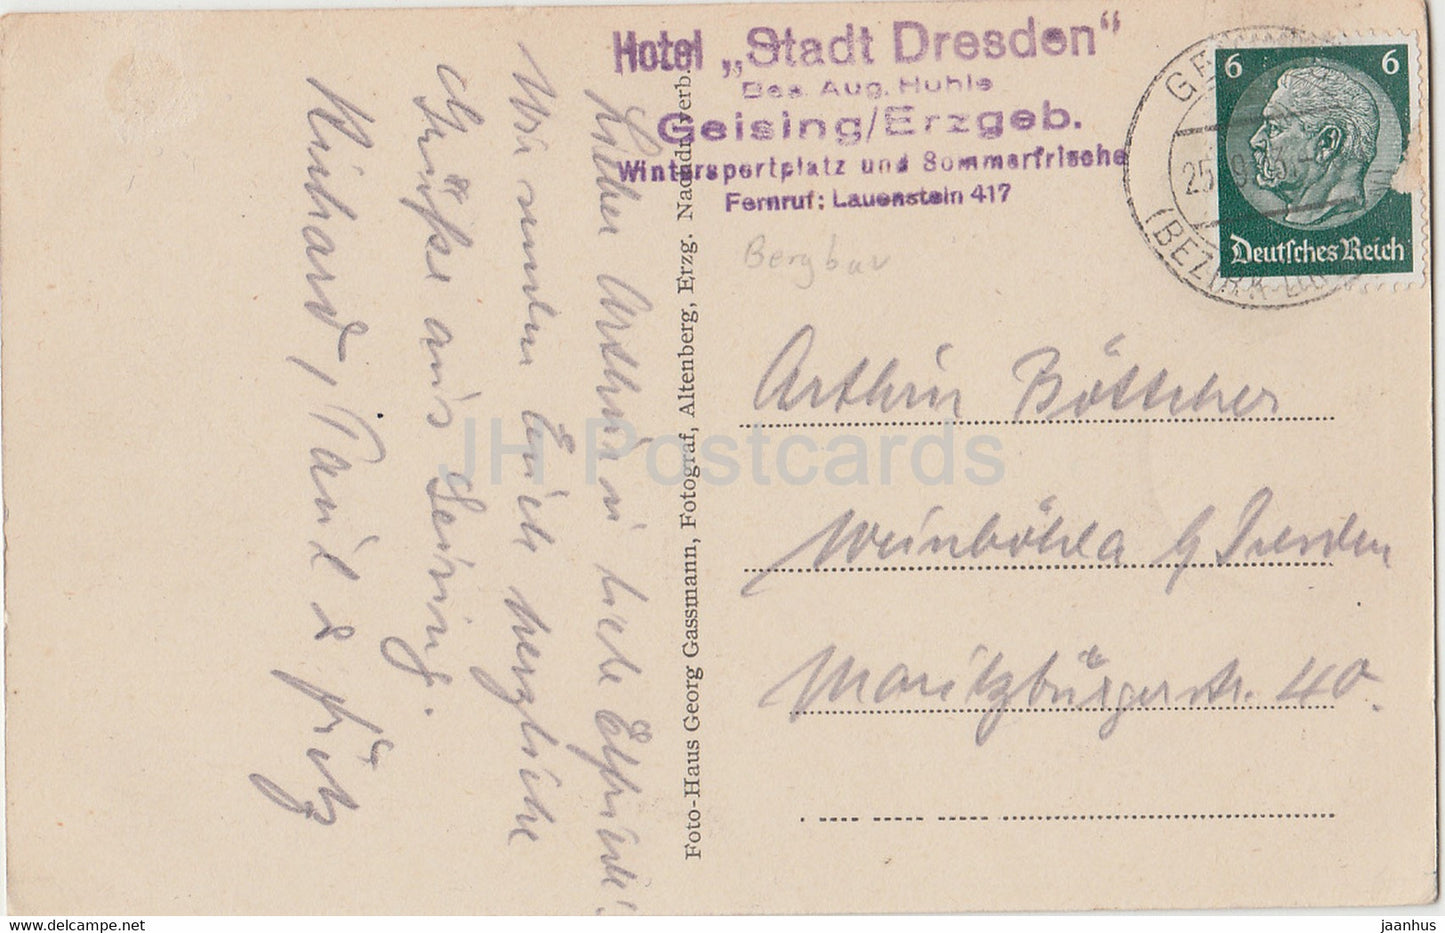 Hotel „Stadt Dresden“
Bes. Aug. Huhle
Geising/Erzgeb.
Wintersportplatz und Sommerfrische
Fernruf: Lauenstein 417
6 6
Deutsches Reich
GE
25. 9.
(BEZIRK
Bergbau
Lieber Arthur u. liebe Elfriede!
Wir senden Euch herzliche
Grüße aus Geising.
Richard, Paul & Fritz
Foto-Haus Georg Gassmann, Fotograf, Altenberg, Erzg. Nachdr. verb.
Arthur Böttcher
Weinböhla b/ Dresden
Moritzburgerstr. 40.
JH Postcards
jaanhus